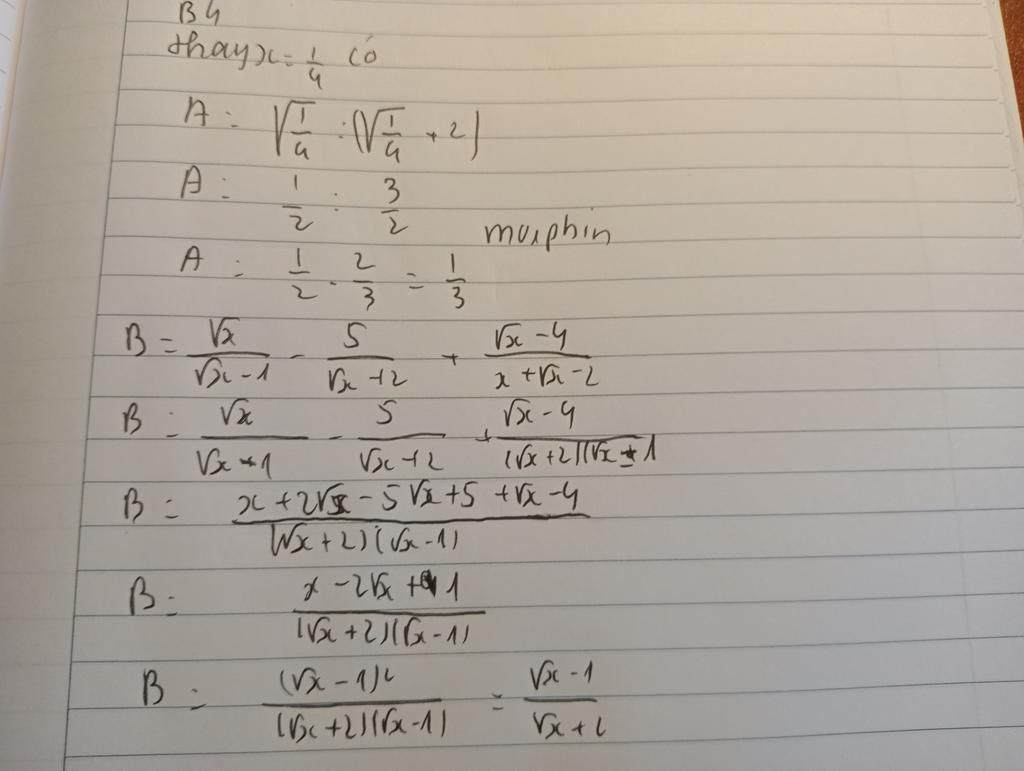 B4
thay x = 1/4 có
A = √(1/4) : (√(1/4) + 2)
A = 1/2 : 3/2
morphin
A = 1/2 . 2/3 = 1/3
B = √x/(√x - 1) - 5/(√x + 2) + (√x - 4)/(x + √x - 2)
B = √x/(√x - 1) - 5/(√x + 2) + (√x - 4)/(√x + 2)(√x - 1
B = (x + 2√x - 5√x + 5 + √x - 4)/(√x + 2)(√x - 1)
B = (x - 2√x + 1)/(√x + 2)(√x - 1)
B = (√x - 1)²/(√x + 2)(√x - 1) = (√x - 1)/(√x + 2)